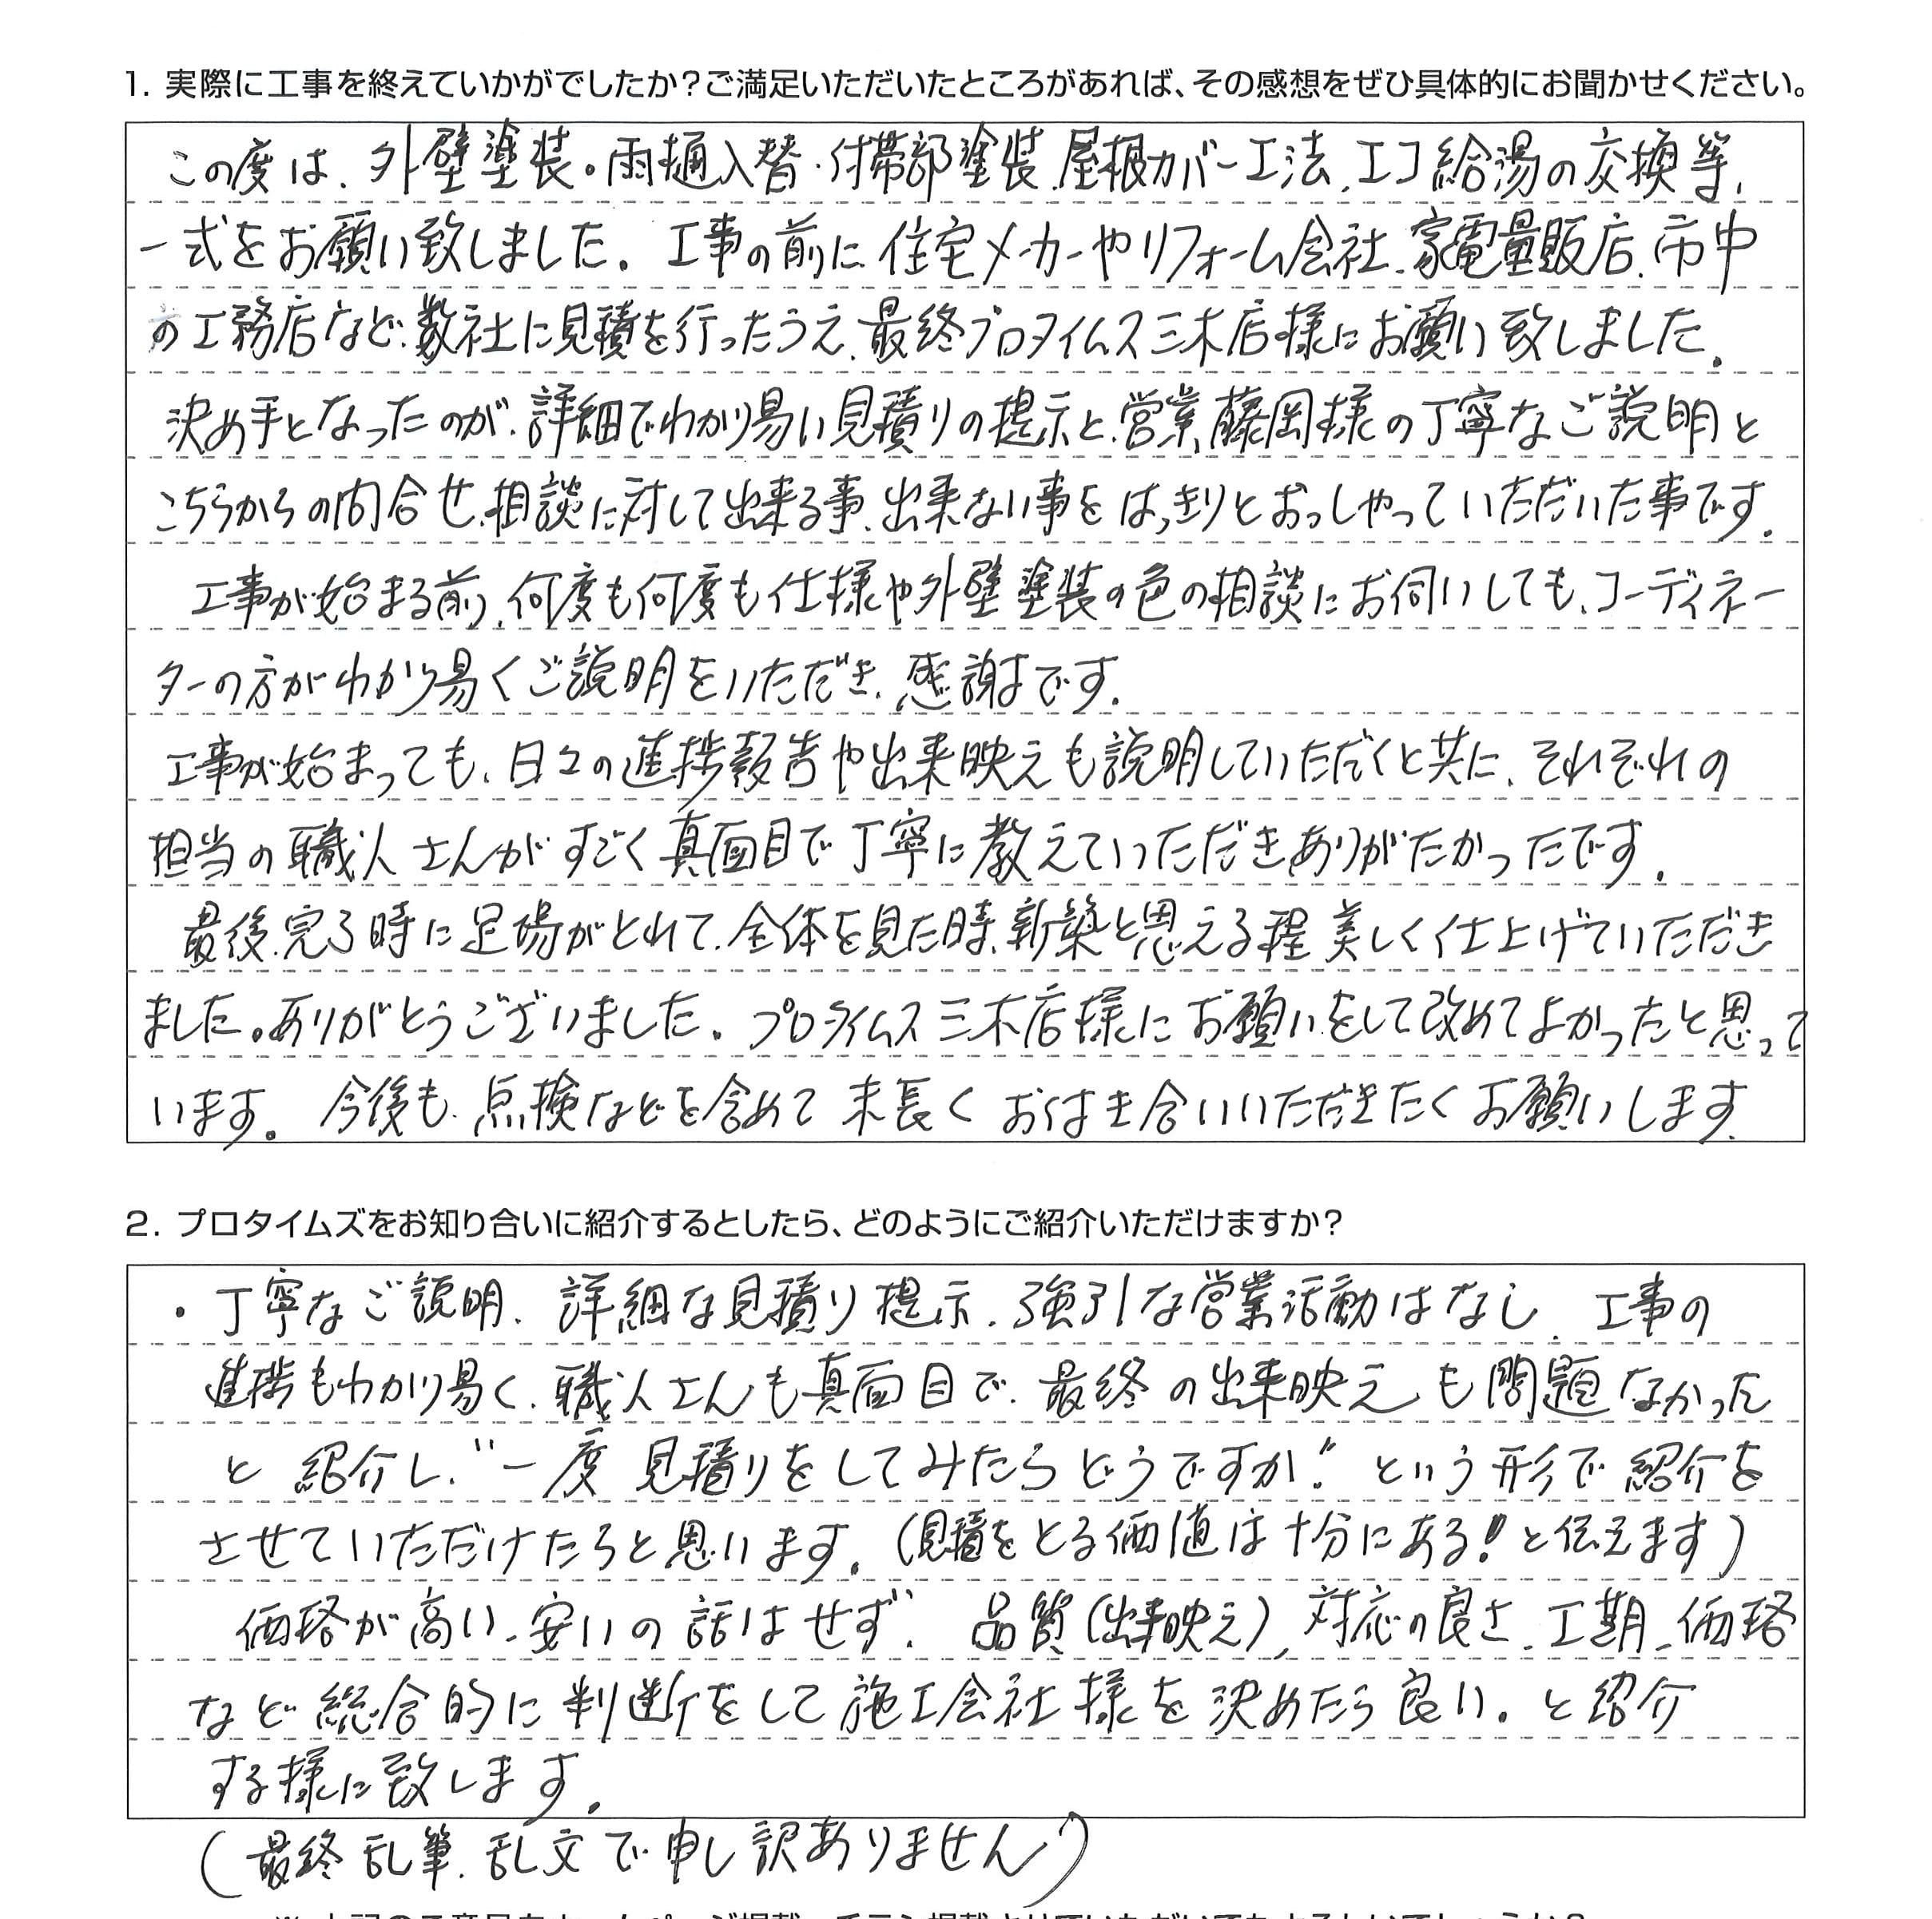 1. 実際に工事を終えていかがでしたか？ご満足いただいたところがあれば、その感想をぜひ具体的にお聞かせください。
この度は、外壁塗装。雨樋入替・付帯部塗装、屋根カバー工法、エコ給湯の交換等、
一式をお願い致しました。工事の前に、住宅メーカーやリフォーム会社、家電量販店、市中
の工務店など、数社に見積を行ったうえ、最終プロタイムス三木店様にお願い致しました。
決め手となったのが、詳細でわかり易い見積りの提示と、営業、藤岡様の丁寧なご説明と
こちらからの問合せ、相談に対して出来る事、出来ない事をはっきりとおっしゃっていただいた事です。
工事が始まる前、何度も何度も仕様や外壁塗装の色の相談にお伺いしても、コーディネー
ターの方がわかり易くご説明をいただき、感謝です。
工事が始まっても、日々の進捗報告や出来映えも説明していただくと共に、それぞれの
担当の職人さんがすごく真面目で丁寧に教えていただきありがたかったです。
最後、完了時に足場がとれて、全体を見た時、新築と思える程美しく仕上げていただき
ました。ありがとうございました。プロタイムス三木店様にお願いをして改めてよかったと思って
います。今後も、点検などを含めて末長くお付き合いいただきたくお願いします。
2. プロタイムズをお知り合いに紹介するとしたら、どのようにご紹介いただけますか？
・丁寧なご説明、詳細な見積り提示、強引な営業活動はなし、工事の
進捗もわかり易く、職人さんも真面目で、最終の出来映えも問題なかった
と紹介し、"一度見積りをしてみたらどうですか!"という形で紹介を
させていただけたらと思います。（見積をとる価値は十分にある！と伝えます）
価格が高い、安いの話はせず、品質（出来映え）、対応の良さ、工期、価格
など総合的に判断をして施工会社様を決めたら良い。と紹介
する様に致します。
（最終乱筆、乱文で申し訳ありません）